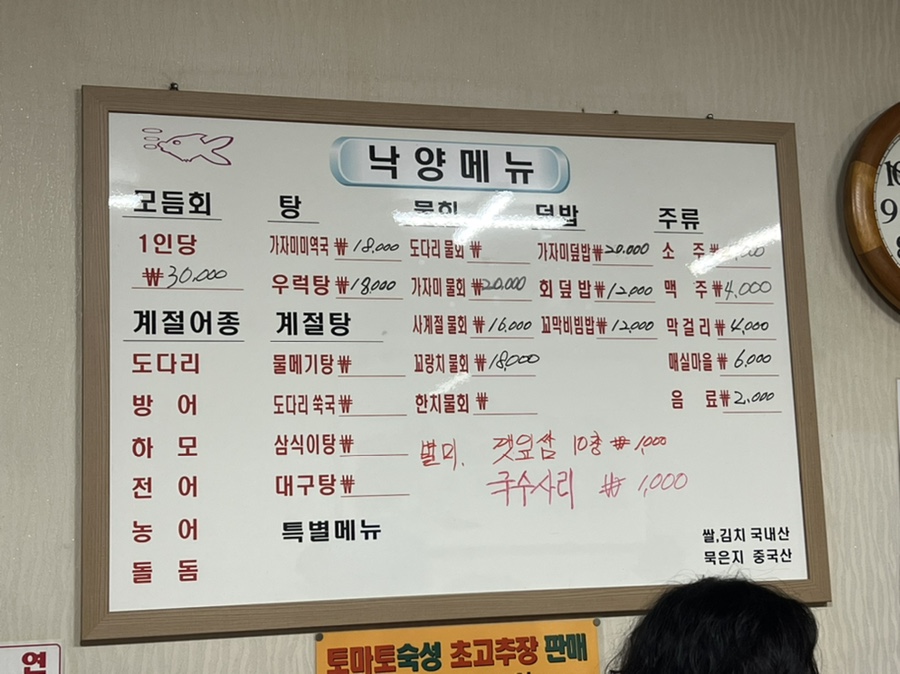 낙양메뉴
모듬회
1인당
₩30,000
계절어종
도다리
방어
하모
전어
농어
돌돔
탕
가자미미역국 ₩18,000
우럭탕 ₩18,000
계절탕
물메기탕 ₩
도다리 쑥국 ₩
삼식이탕 ₩
대구탕 ₩
특별메뉴
물회
도다리 물회 ₩
가자미 물회 ₩20,000
사계절 물회 ₩16,000
꼬랑치 물회 ₩18,000
한치물회 ₩
덮밥
가자미덮밥 ₩20,000
회덮밥 ₩12,000
꼬막비빔밥 ₩12,000
주류
소주 ₩
맥주 ₩4,000
막걸리 ₩4,000
매실마을 ₩6,000
음료 ₩2,000
별미. 10종 ₩1,000
국수사리 ₩1,000
쌀,김치 국내산
묵은지 중국산
토마토숙성 초고추장 판매
연
10
9
8